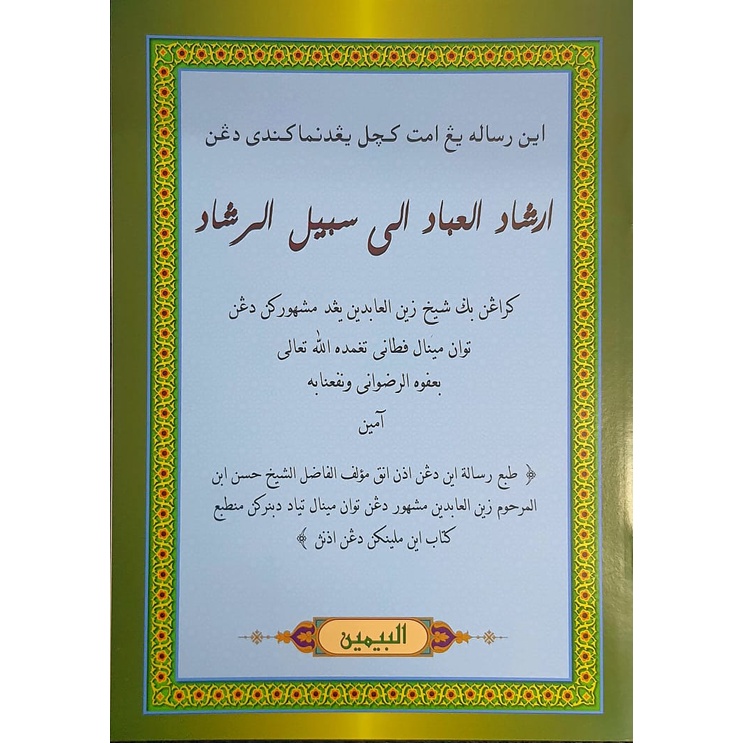 اين رساله يڠ امت كچل يڠدنماكندي دڠن
ارشاد العباد الى سبيل الرشاد
كراڠن بك شيخ زين العابدين يڠد مشهوركن دڠن
توان مينال فطاني تغمده الله تعالى
بعفوه الرضواني ونفعنابه
آمين
﴿ طبع رسالة اين دڠن اذن انق مؤلف الفاضل الشيخ حسن ابن
المرحوم زين العابدين مشهور دڠن توان مينال تياد دبنركن منطبع
كتاب اين ملينكن دڠن اذنڽ ﴾
البيمين